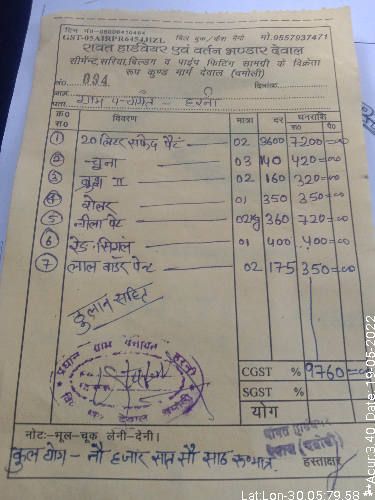 टिन नं०-05008410404
GST-05AIRPR6454H1ZL बिल बुक/कैश मेमो मो.9557937471
रावत हार्डवेयर एवं बर्तन भण्डार देवाल
सीमेन्ट, सरिया, बिल्डिंग व पाईप फिटिंग सामग्री के विक्रेता
रूप कुण्ड मार्ग देवाल (चमोली)
नं0. 094 दिनांक
नाम ग्राम पंचायत - हरनी
क्र0 सं0 विवरण मात्रा दर धनराशि रू0 पै0
1 20 लिटर सफेद पेंट 02 3600 7200=00
2 चुना 03 140 420=00
3 ब्रुश II 02 160 320=00
4 रोलर 01 350 350=00
5 नीला पेंट 02kg 360 720=00
6 रेड सिंगल 01 400 400=00
7 लाल बॉडर पेन्ट 02 175 350=00
ढुलान सहित
प्रधान ग्राम पंचायत हरनी
देवाल चमोली
CGST % 9760=00
SGST %
योग
नोट:-भूल-चूक लेनी-देनी।
कुल योग - नौ हजार सात सौ साठ रू० मात्र
हस्ताक्षर
Lat:Lon-30.05:79.58
Acur:3.40 Date:19-05-2022